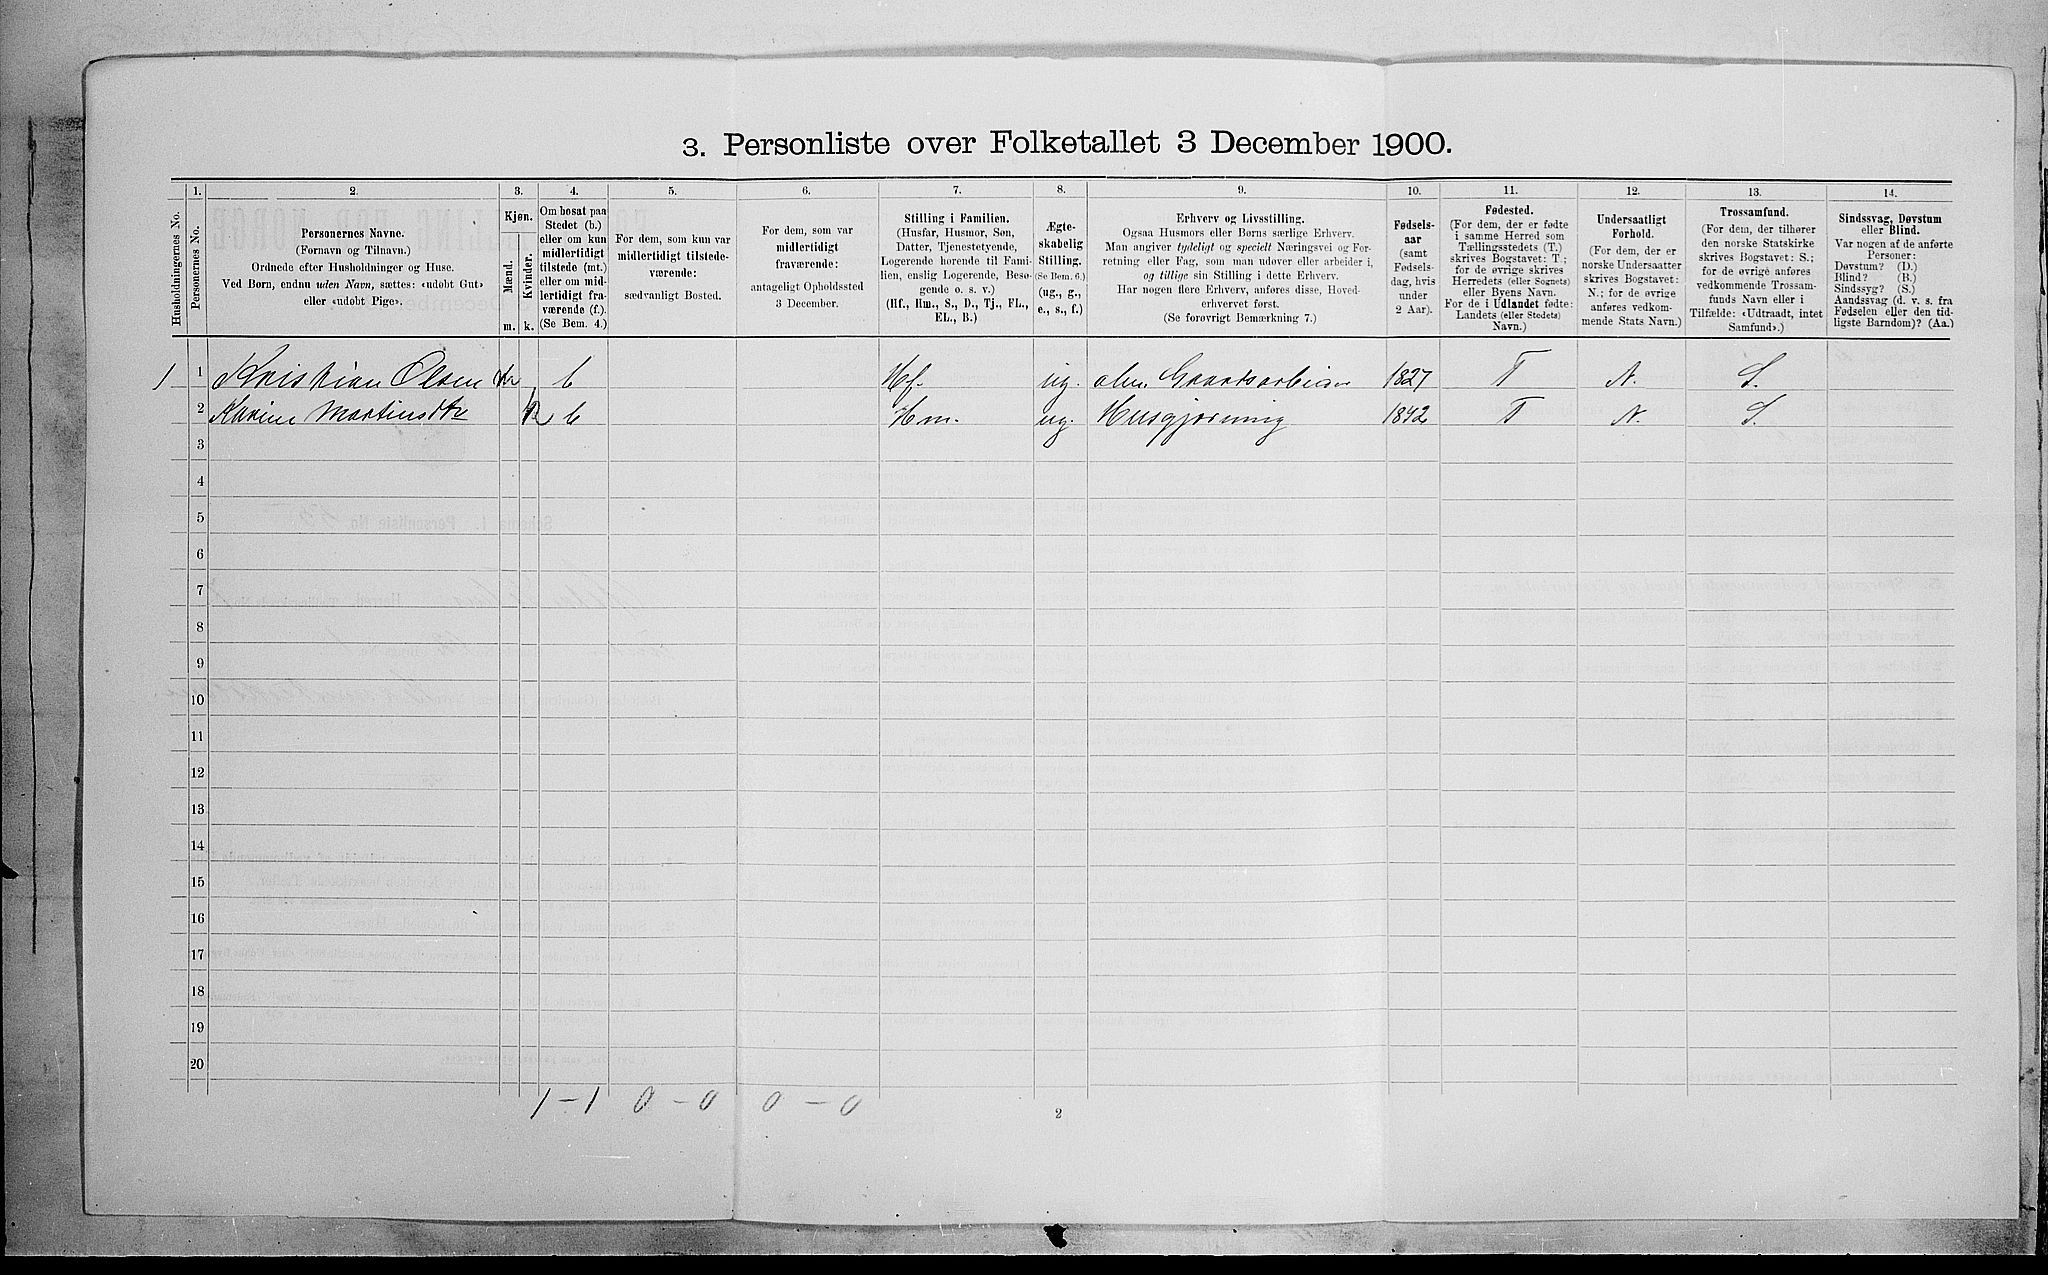 3. Personliste over Folketallet 3 December 1900.
1. 2. 3. 4. 5. 6. 7. 8. 9. 10. 11. 12. 13. 14.
Husholdningernes No.
Personernes No.
Personernes Navne.
(Fornavn og Tilnavn.)
Ordnede efter Husholdninger og Huse.
Ved Børn, endnu uden Navn, sættes: «udøbt Gut»
eller «udøbt Pige».
Kjøn.
Mænd.
Kvinder.
m. k.
Om bosat paa
Stedet (b.)
eller om kun
midlertidigt
tilstede (mt.)
eller om mid-
lertidigt fra-
værende (f.).
(Se Bem. 4.)
For dem, som kun var
midlertidigt tilstede-
værende:
sædvanligt Bosted.
For dem, som var
midlertidigt
fraværende:
antageligt Opholdssted
3 December.
Stilling i Familien.
(Husfar, Husmor, Søn,
Datter, Tjenestetyende,
Logerende hørende til Fami-
lien, enslig Logerende, Besø-
gende o. s. v.)
(Hf., Hm., S., D., Tj., FL.,
EL., B.)
Ægte-
skabelig
Stilling.
(Se Bem. 6.)
(ug., g.,
e., s., f.)
Erhverv og Livsstilling.
Ogsaa Husmors eller Børns særlige Erhverv.
Man angiver tydeligt og specielt Næringsvei og For-
retning eller Fag, som man udøver eller arbeider i,
og tillige sin Stilling i dette Erhverv.
Har nogen flere Erhverv, anføres disse, Hoved-
erhvervet først.
(Se forøvrigt Bemærkning 7.)
Fødsels-
aar
(samt
Fødsels-
dag, hvis
under
2 Aar).
Fødested.
(For dem, der er fødte
i samme Herred som
Tællingsstedets (T.)
skrives Bogstavet: T.;
for de øvrige skrives
Herredets (eller Sognets)
eller Byens Navn.
For de i Udlandet fødte:
Landets (eller Stedets)
Navn.)
Undersaatligt
Forhold.
(For dem, der er
norske Undersaatter
skrives Bogstavet:
N.; for de øvrige
anføres vedkom-
mende Stats Navn.)
Trossamfund.
(For dem, der tilhører
den norske Statskirke
skrives Bogstavet: S.;
for de øvrige anføres
vedkommende Trossam-
funds Navn eller i
Tilfælde: «Udtraadt, intet
Samfund».)
Sindssvag, Døvstum
eller Blind.
Var nogen af de anførte
Personer:
Døvstum? (D.)
Blind? (B.)
Sindssyg? (S.)
Aandssvag (d. v. s. fra
Fødselen eller den tid-
ligste Barndom)? (Aa.)
1 1 Kristian Olsen b Hf. ug. alm. Gaardsarbeide 1827 T N. S.
2 Karine Martinsdtr k b Hm. ug. Husgjerning 1842 T N. S.
3
4
5
6
7
8
9
10
11
12
13
14
15
16
17
18
19
20
1 – 1 0 – 0 0 – 0
2